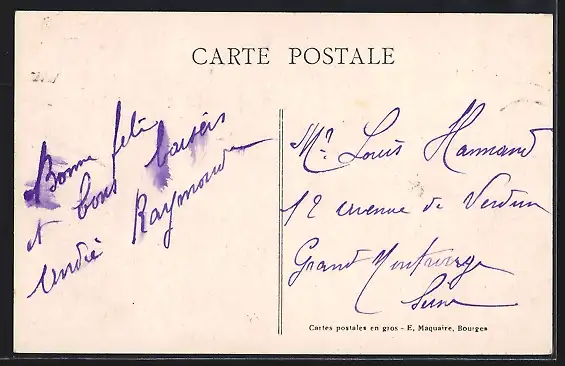 CARTE POSTALE
Bonne fête
et bons baisers
Raymonde
Mr Louis Hannand
12 avenue de Verdun
Grand Montrouge
Seine
Cartes postales en gros - E. Maquaire, Bourges